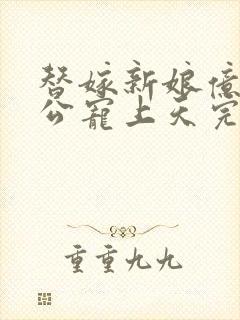 替嫁新娘亿
公宠上天完
重重九九